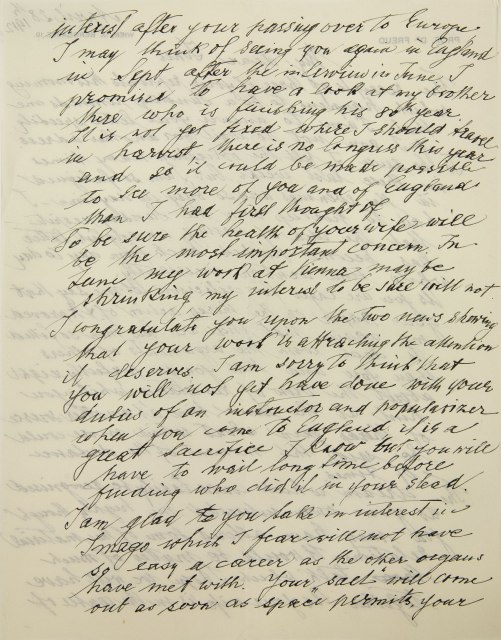 interest after your passing over to Europe.
I may think of seeing you again in England
in Sept. after the interview in June, I
promised to have a look at my brother
there who is finishing his 80th year.
It is not yet fixed where I should travel
in harvest there is no congress this year
and so it could be made possible
to see more of you and of England
than I had first thought of.
To be sure the health of your wife will
be the most important concern. In
June my work at Vienna may be
shrinking my interest to be sure will not
I congratulate you upon the two news showing
that your work is attracting the attention
it deserves. I am sorry to think that
you will not yet have done with your
duties of an instructor and popularizer
when you come to England it is a
great sacrifice I know but you will
have to wait long time before
finding who did it in your stead.
I am glad to you take in interest in
Imago which I fear will not have
so easy a career as the other organs
have met with. Your "salt" will come
out as soon as space permits, your